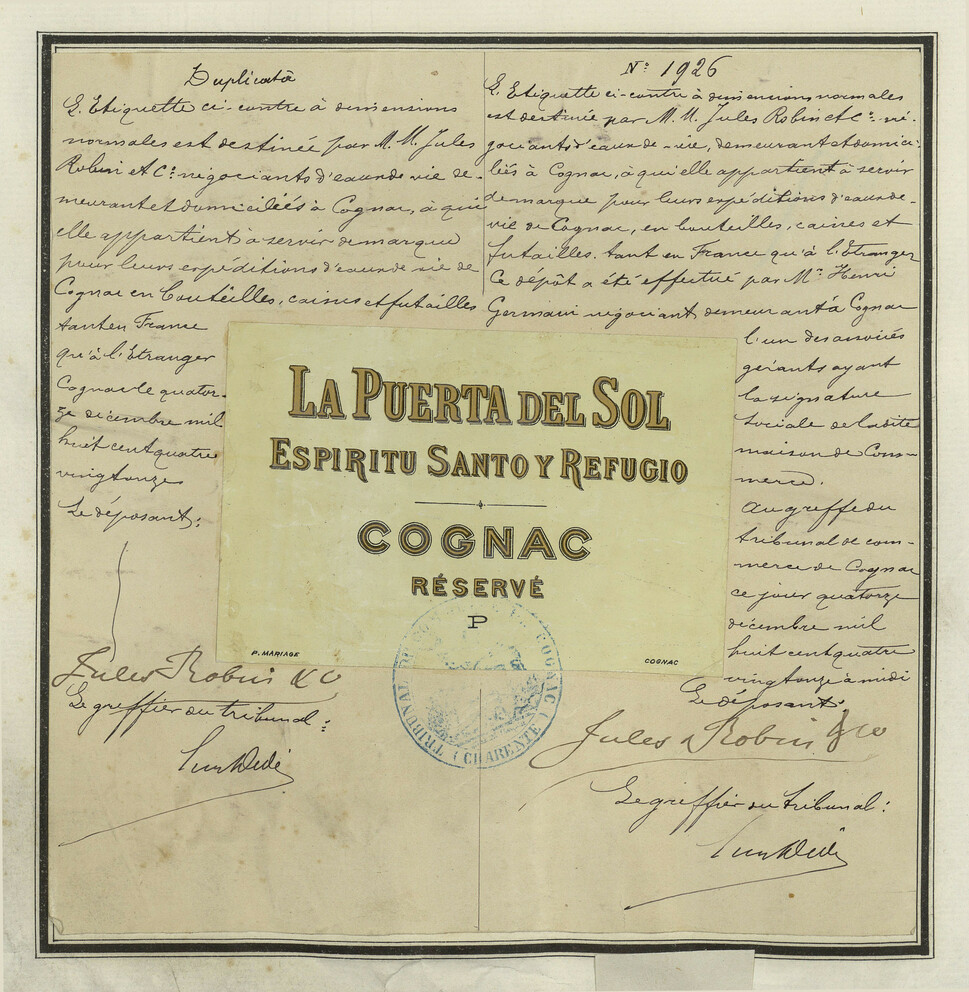 Duplicata
L'Etiquette ci-contre à dimensions
normales est destinée par M.M. Jules
Robin et Cie négociants d'eaux de vie de-
meurant et domiciliés à Cognac, à qui
elle appartient à servir de marque
pour leurs expéditions d'eaux de vie de
Cognac en bouteilles, caisses et futailles
tant en France
qu'à l'Etranger
Cognac le quator-
ze décembre mil
huit cent quatre
vingt onze
Le déposant:
Jules Robin & Co
Le greffier du tribunal:
No 1926
L'Etiquette ci-contre à dimensions normales
est destinée par M.M. Jules Robin et Cie né-
gociants d'eaux-de-vie, demeurant et domici-
liés à Cognac, à qui elle appartient à servir
de marque pour leurs expéditions d'eaux-de-
vie de Cognac, en bouteilles, caisses et
futailles, tant en France qu'à l'Etranger
Ce dépôt a été effectué par Mr Henri
Germain négociant demeurant à Cognac
l'un des associés
gérants ayant
la signature
sociale de ladite
maison de Com-
merce.
Au greffe du
tribunal de com-
merce de Cognac
ce jour quatorze
décembre mil
huit cent quatre
vingt onze à midi
Le déposant:
Jules Robin & Co
Le greffier du tribunal:
LA PUERTA DEL SOL
ESPIRITU SANTO Y REFUGIO
COGNAC
RÉSERVÉ
P
P. MARIAGE
COGNAC
TRIBUNAL DE COGNAC (CHARENTE)